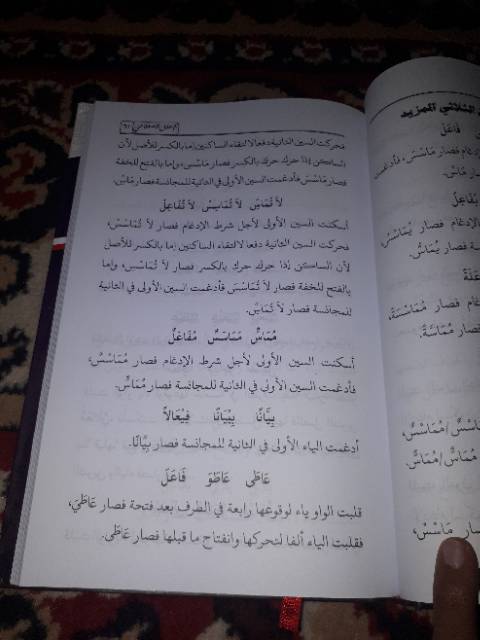 فحركت السين الثانية دفعا لالتقاء الساكنين إما بالكسر للأصل لأن
الساكن إذا حرك حرك بالكسر فصار مَاسِسْ، وإما بالفتح للخفة
فصار مَاسَسْ فأدغمت السين الأولى في الثانية للمجانسة فصار مَاسَّ.
لاَ تُمَاسَّ لاَ تُمَاسِسْ لاَ تُفَاعِلْ
أسكنت السين الأولى لأجل شرط الإدغام فصار لاَ تُمَاسْسْ،
فحركت السين الثانية دفعا لالتقاء الساكنين إما بالكسر للأصل
لأن الساكن إذا حرك حرك بالكسر فصار لاَ تُمَاسْسِ، وإما
بالفتح للخفة فصار لاَ تُمَاسْسَ فأدغمت السين الأولى في الثانية
للمجانسة فصار لاَ تُمَاسَّ.
مُمَاسٌّ مُمَاسَسٌ مُفَاعَلٌ
أسكنت السين الأولى لأجل شرط الإدغام فصار مُمَاسْسٌ،
فأدغمت السين الأولى في الثانية للمجانسة فصار مُمَاسٌّ.
بِيَّانًا بِيْيَانًا فِيْعَالاً
أدغمت الياء الأولى في الثانية للمجانسة فصار بِيَّانًا.
عَاطَى عَاطَوَ فَاعَلَ
قلبت الواو ياء لوقوعها رابعة في الطرف بعد فتحة فصار عَاطَيَ،
فقلبت الياء ألفا لتحركها وانفتاح ما قبلها فصار عَاطَى.
الثلاثي المزيد
فَاعَلَ
يُفَاعِلُ
فصار يُمَاسْسُ،
فصار يُمَاسُّ.
فصار مُمَاسْسَةً،
فصار مُمَاسَّةً.
فصار مَاسْسْ،